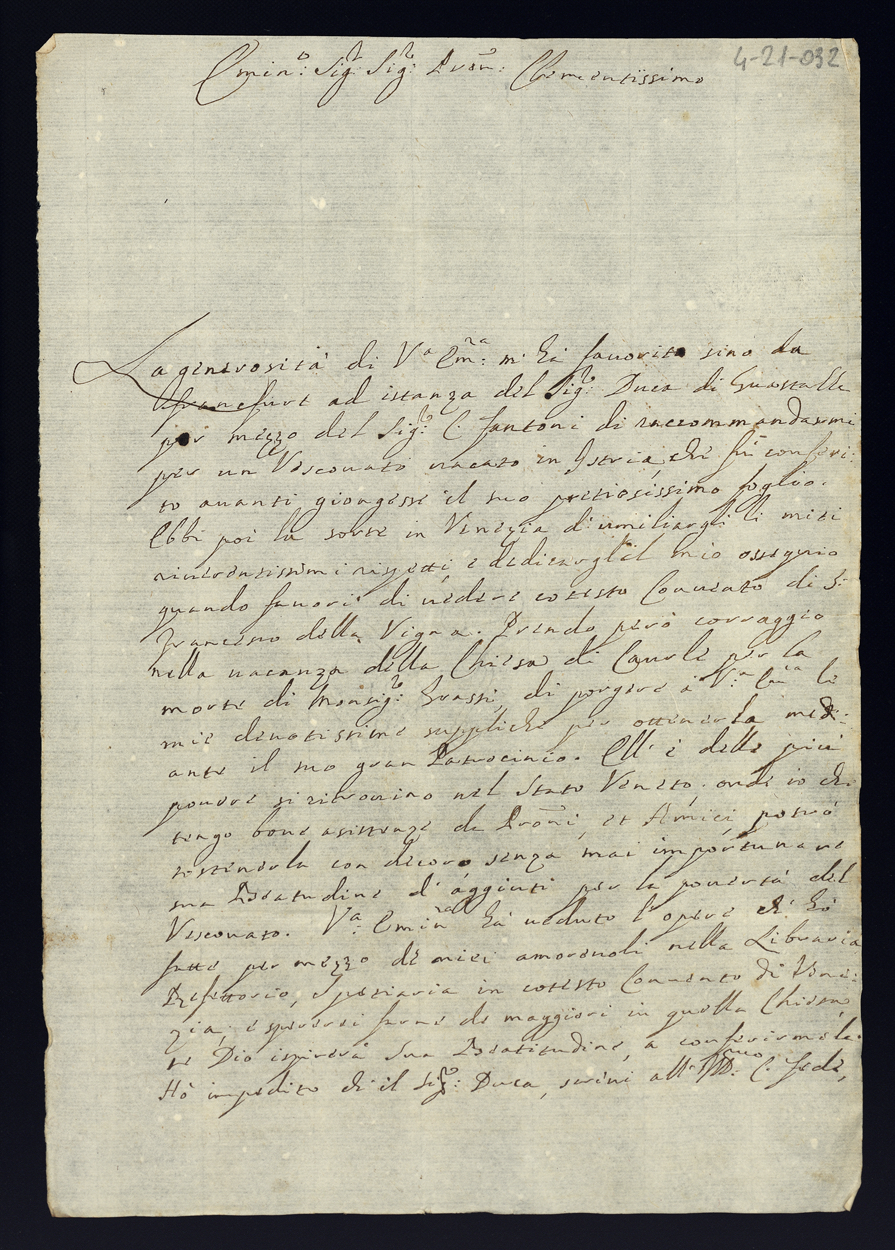 4-21-032
Emin:o Sig:r Sig:r Pron: Clementissimo
La generosità di V.a Em:ra m'hà fauorito sino da
francfurt ad istanza del Sig:r Duca di Guastalla
per mezzo del Sig:r C. fantoni di raccommandarmi
per un Vescouato uacato in Istria, che fù conferi:
to auanti giongesse il suo pretiosissimo foglio.
Ebbi poi la sorte in Venezia di umiliargli li miei
riuerentissimi rispetti, e dedicargl'il mio ossequio
quando fauorì di uedere cotesto Conuento di S:
Francesco della Vigna. Prendo però corraggio
nella uacanza della Chiesa di Caorle per la
morte di Monsig:r Grassi, di porgere à V:a Em:ra le
mie deuotissime suppliche per ottenerla medi:
ante il suo gran Patrocinio. Ell' è delle più
pouere si ritrouino nel Stato Veneto, onde io che
tengo bone asistenze da Proni, et Amici, potrò
sostenerla con decoro senza mai importunare
sua Beatudine d'aggiuti per la pouertà del
Vescouato. V:a Emin:ra hà ueduto l'opere ch' hò
fatte per mezzo de miei amoreuoli nella Libraria
Refettorio, e speziaria in cotesto Conuento di Vene:
zia; e sperarei farne de maggiori in quella Chiesa,
se Dio ispirerà Sua Beatitudine, a conferirmela.
Hò impedito ch il Sig:r Duca, scriui all' C. fede,